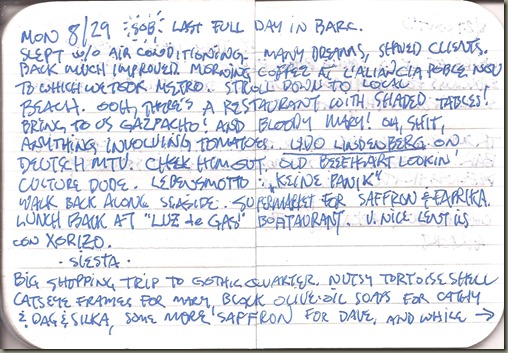 MON 8/29 SOB LAST FULL DAY IN BARC.
SLEPT W/O AIR CONDITIONING. MANY DREAMS, SERVED CLIENTS.
BACK MUCH IMPROVED. MORNING COFFEE AT L'ALIANCIA POBLE NOU
TO WHICH WE TOOK METRO. STROLL DOWN TO LOCAL
BEACH. OOH, THERE'S A RESTAURANT WITH SHADED TABLES!
BRING TO US GAZPACHO! AND BLOODY MARY! OH, SHIT,
ANYTHING INVOLVING TOMATOES. UDO LINDENBERG ON
DEUTSCH MTV. CHEK HIM OUT. OLD BEEFHEART LOOKIN'
CULTURE DUDE. LEBENSMOTTO: "KEINE PANIK"
WALK BACK ALONG SEASIDE. SUPERMARKET FOR SAFFRON & PAPRIKA.
LUNCH BACK AT "LUZ de GAS" BOATAURANT. V. NICE LENTILS
CON XORIZO.
- SIESTA -
BIG SHOPPING TRIP TO GOTHIC QUARTER. NUTSY TORTOISE SHELL
CATSEYE FRAMES FOR MARY, BLACK OLIVE-OIL SOAPS FOR CATHY
& DAG & SILKA, SOME MORE SAFFRON FOR DAVE, AND WHILE →